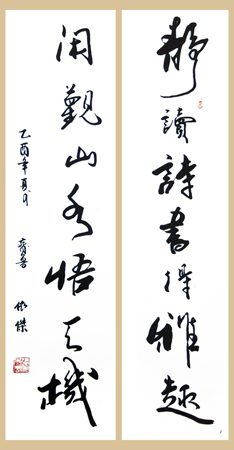 靜讀詩書得雅趣
閒觀山水悟天機
乙酉年夏月